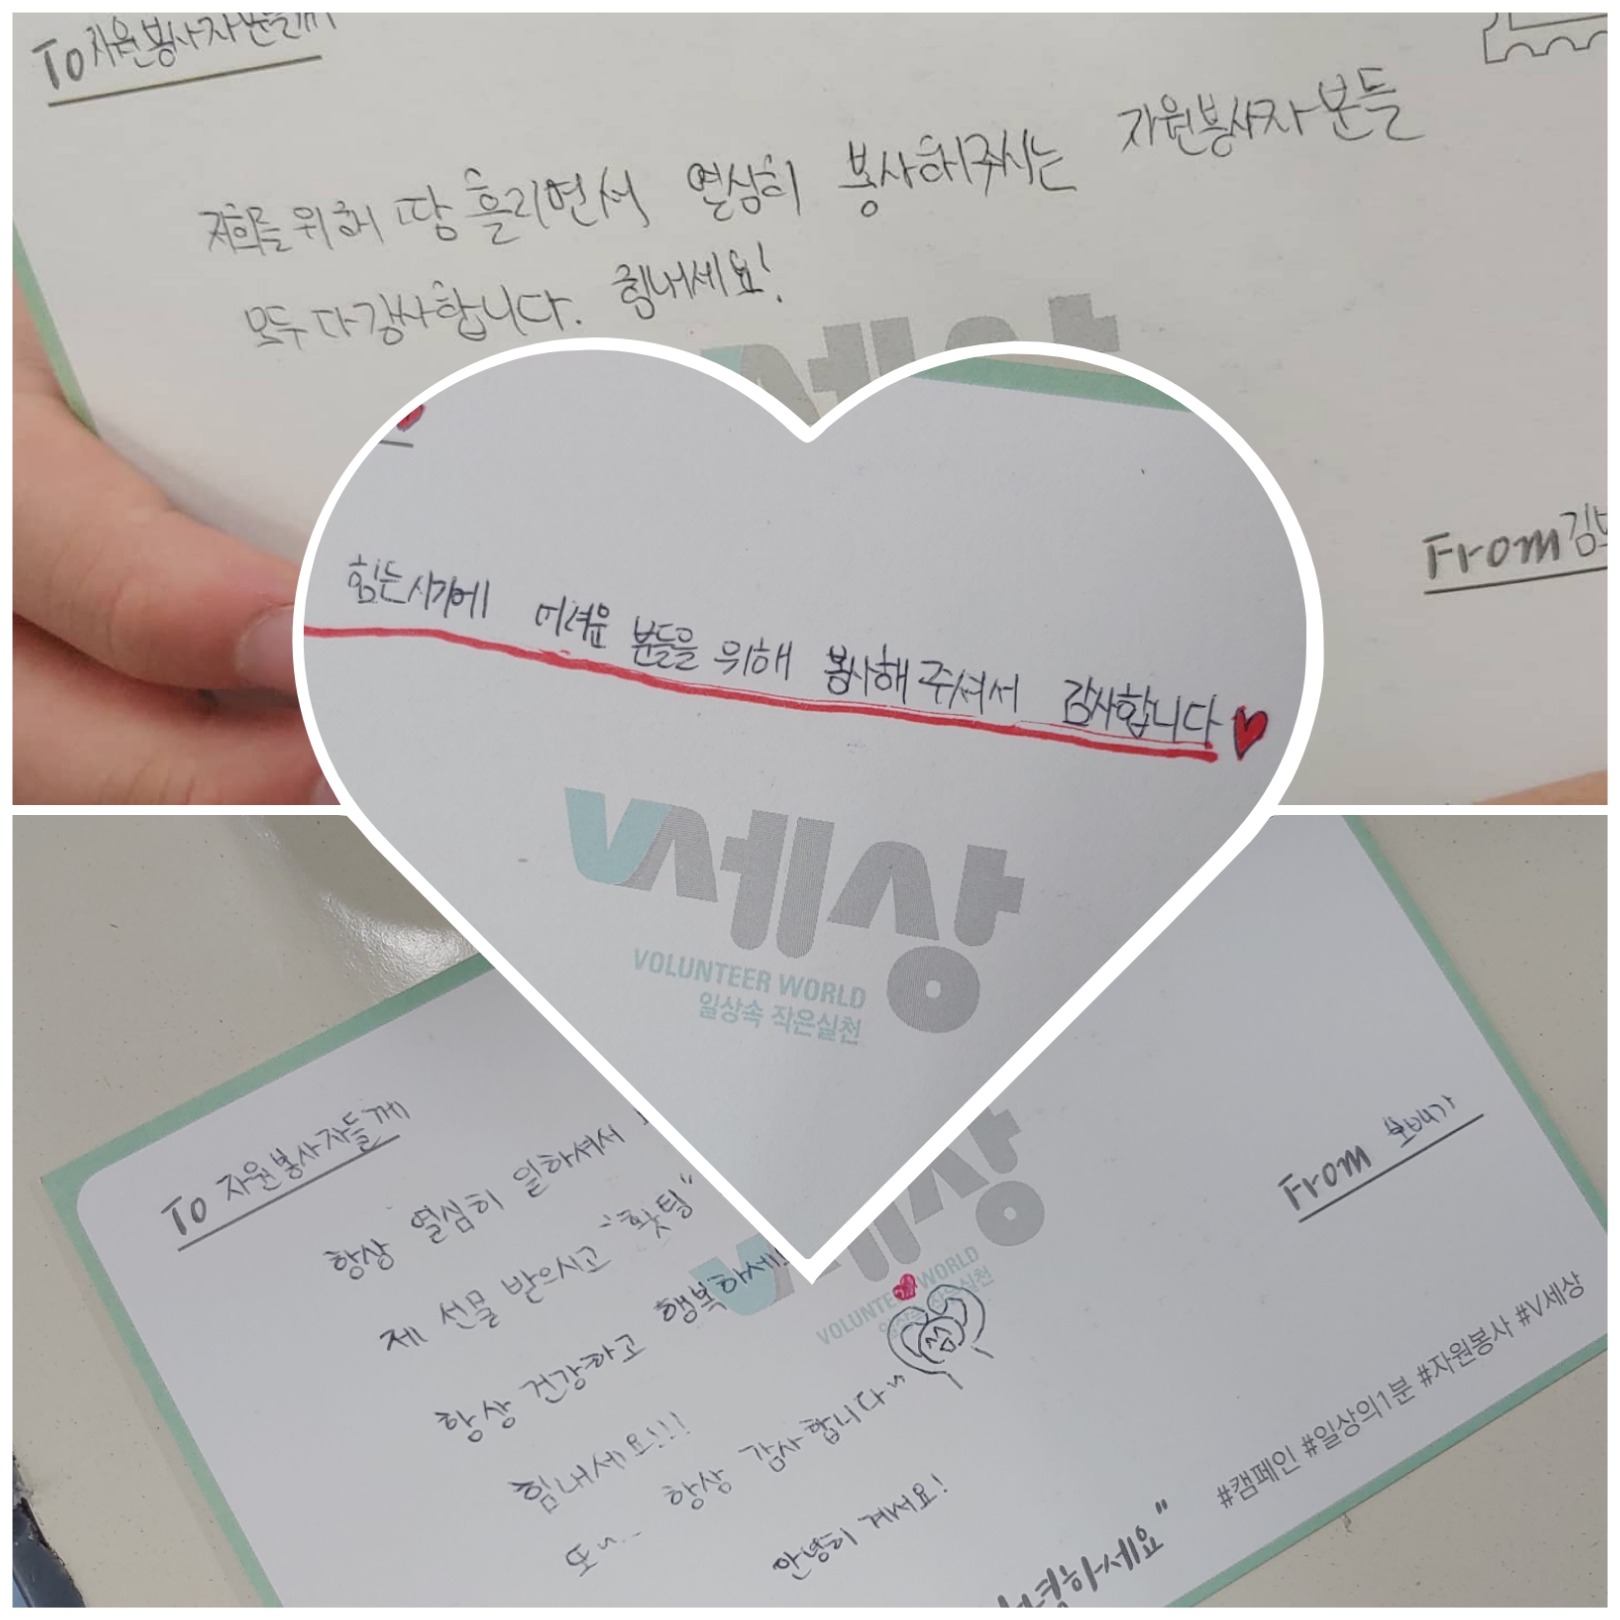 To 자원봉사자분들께
저희를 위해 땅 흘리면서 열심히 봉사해주시는 자원봉사자분들
모두 다 감사합니다. 힘내세요!
세상
From 김보
힘든시기에 어려운 분들을 위해 봉사해 주셔서 감사합니다
V세상
VOLUNTEER WORLD
일상속 작은실천
To 자원봉사자들께
항상 열심히 일하셔서
제 선물 받으시고 "홧팅"
항상 건강하고 행복하세!!
힘내세요!!!
또~.. 항상 감사합니다~
안녕히 계세요!
From 보배가
세상
VOLUNTE WORLD
#캠페인 #일상의1분 #자원봉사 #V세상
녕하세요"